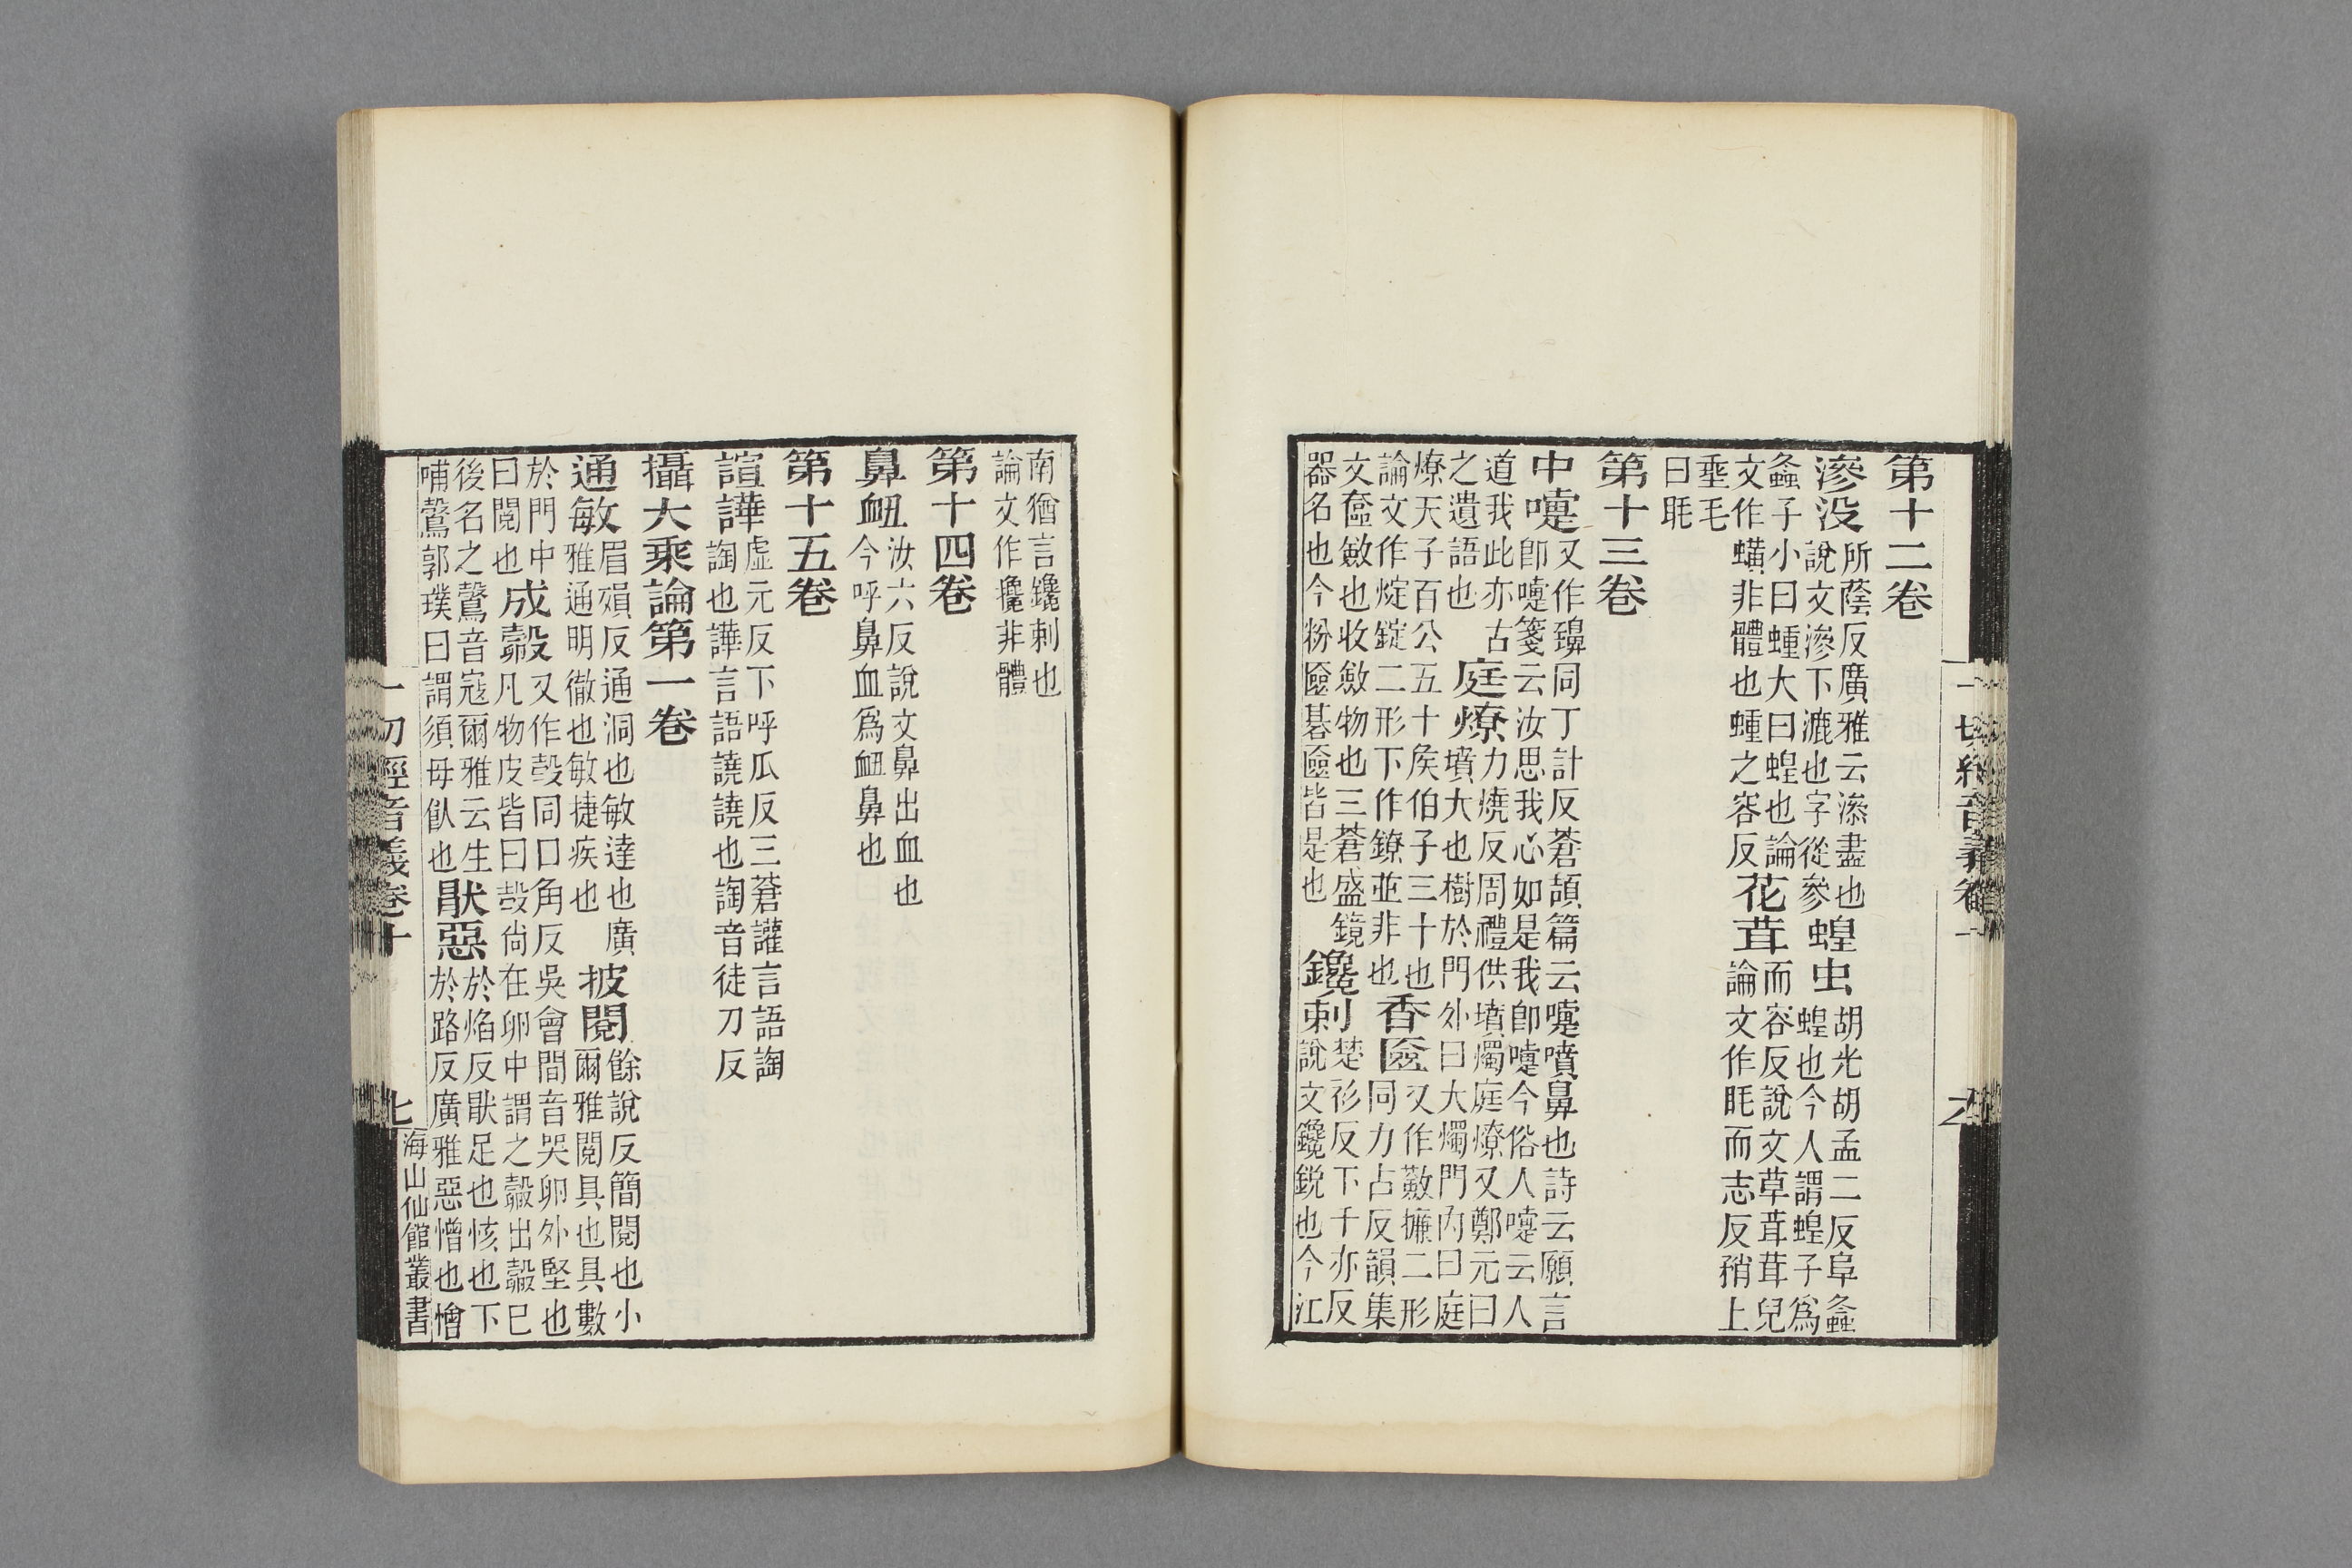 第十二卷
滲没 所蔭反廣雅云滲盡也
說文滲下漉也字從參 蝗虫 胡光胡孟二反阜螽
蝗也今人謂蝗子為
螽子小曰蝩大曰蝗也論
文作蟥非體也蝩之容反 花茸 而容反說文草茸茸皃
論文作毦而志反矟上
垂毛
曰毦
第十三卷
中嚏 又作𪖦同丁計反蒼頡篇云嚏噴鼻也詩云願言
卽嚏箋云汝思我心如是我卽嚏今俗人嚏云人
道我此亦古
之遺語也 庭燎 力燒反周禮供墳燭庭燎又鄭元曰
墳大也樹於門外曰大燭門內曰庭
燎天子百公五十矦伯子三十也
論文作㷚錠二形下作鐐並非也 香匳 又作籢㯰二形
同力占反韻集
文奩斂也收斂物也三蒼盛鏡
器名也今粉匳碁匳皆是也 鑱刺 楚衫反下千亦反
說文鑱銳也今江
南猶言鑱刺也
論文作攙非體
第十四卷
鼻衄 汝六反說文鼻出血也
今呼鼻血為衄鼻也
第十五卷
諠譁 虛元反下呼瓜反三蒼讙言語詾
詾也譁言語譊譊也詾音徒刀反
攝大乘論第一卷
通敏 眉殞反通洞也敏達也廣
雅通明徹也敏捷疾也 披閱 餘說反簡閱也小
爾雅閱具也具數
於門中
曰閱也 成㲉 又作㱿同口角反吳會間音哭卵外堅也
凡物皮皆曰㱿尚在卵中謂之㲉出㲉已
後名之鷇音寇爾雅云生
哺鷇郭璞曰謂須母飤也 猒惡 於焰反猒足也恢也下
於路反廣雅惡憎也憎
一切經音義卷十
七
海山仙館叢書